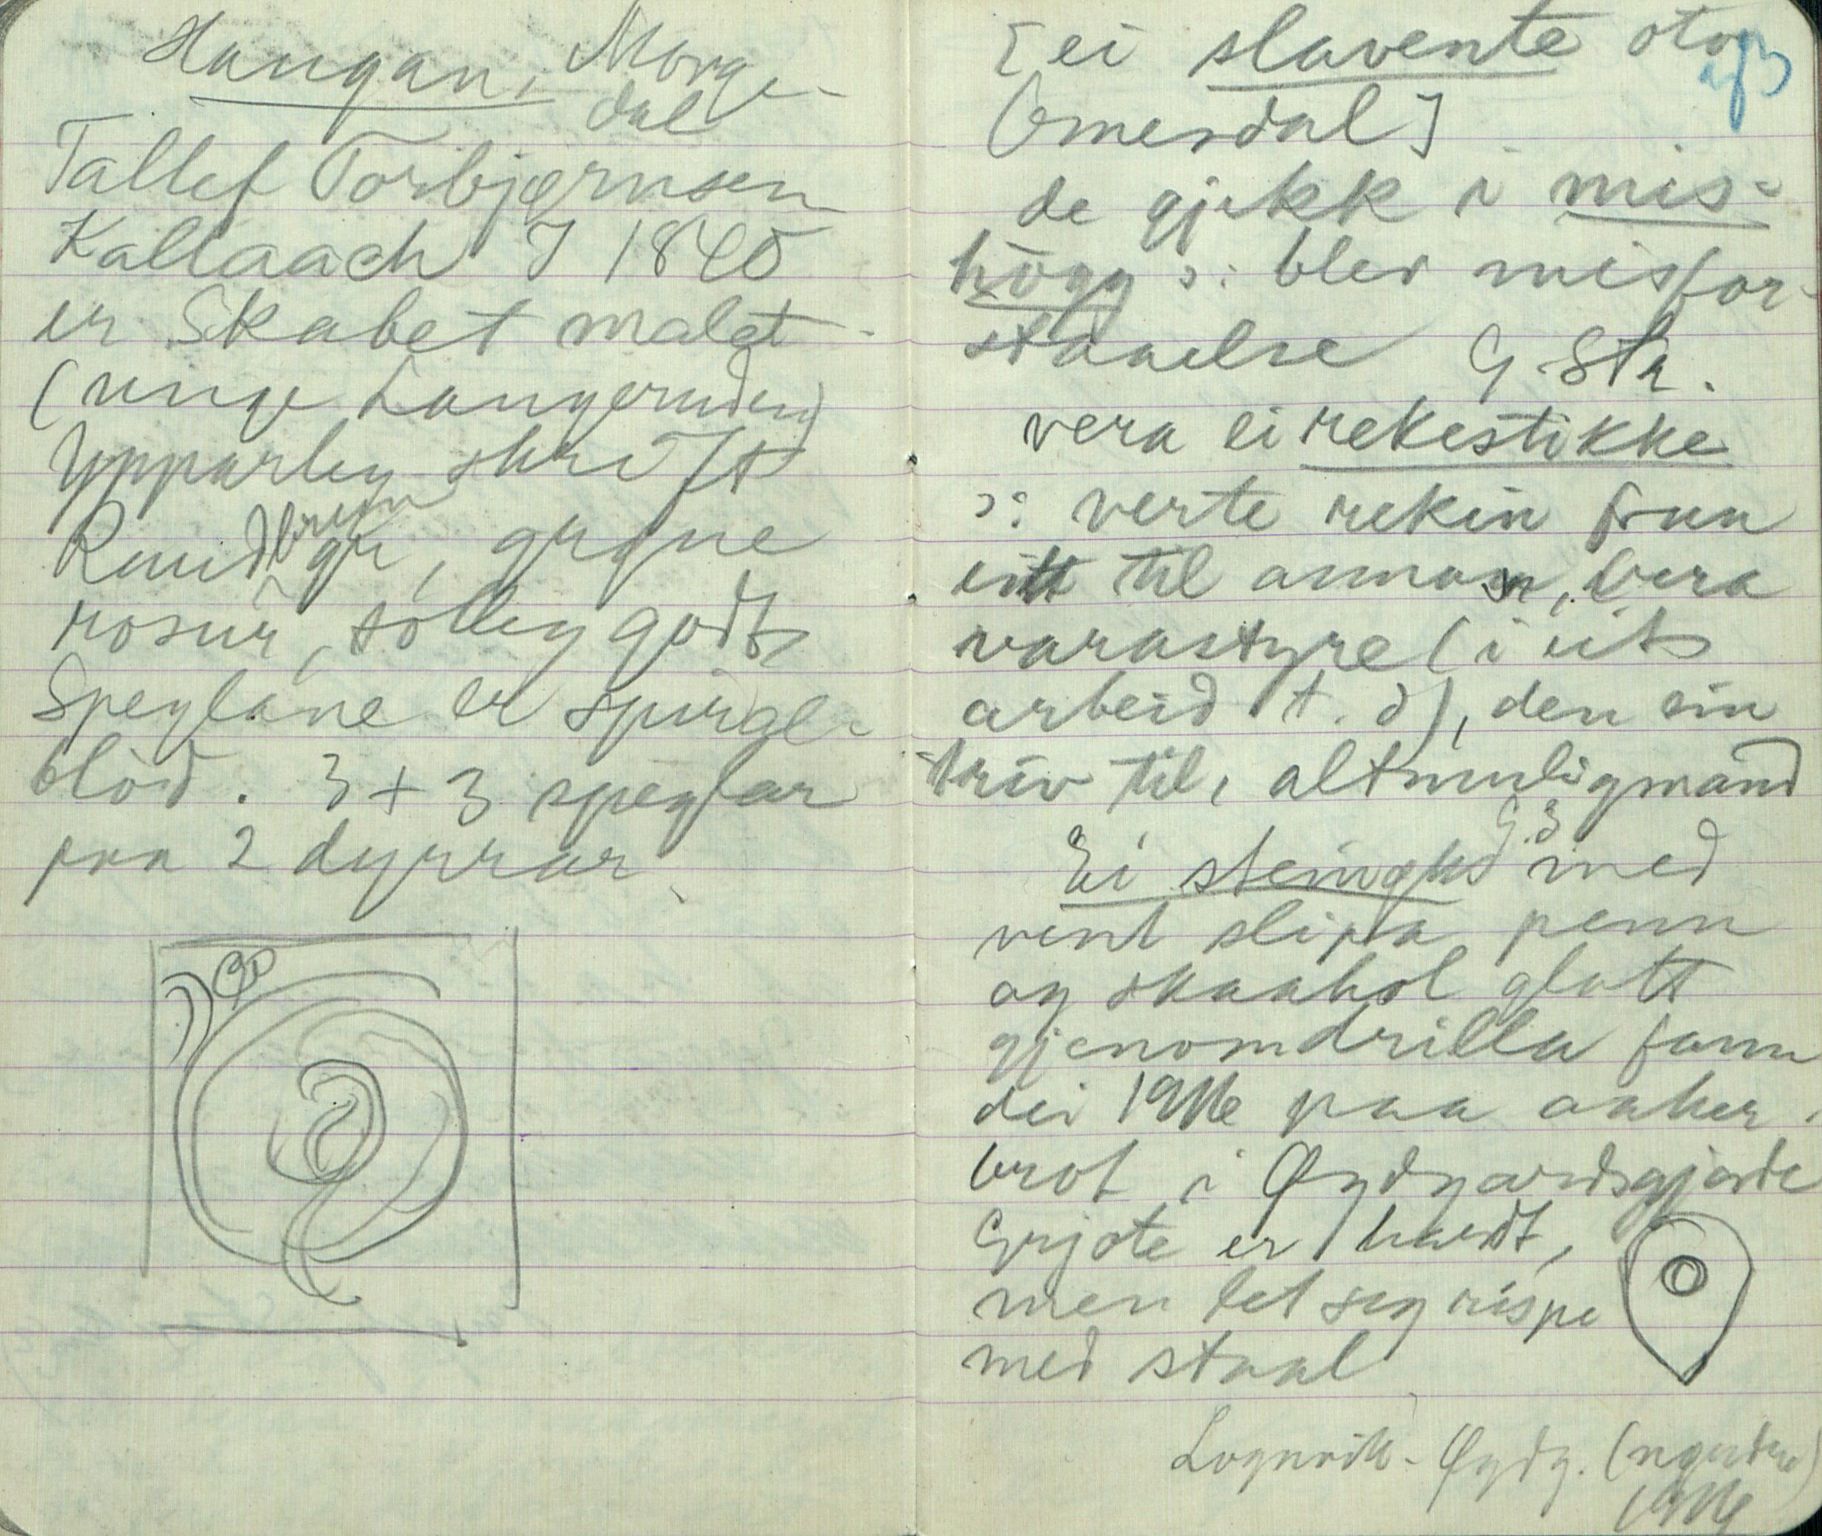 Haugan, Morge-
dal
Tallef Torbjørnsen
Kallaach J 1840
er Skabet malet -
(unge Langeruden)
Ypparleg skrift
Raudbrun
gr, grøne
rosur, sølleg godt
Speglane er spiral-
blod. 3 + 3 speglar
paa 2 dyrrar.
[ei slavente
(Omesdal]
de gjekk i mis-
hògg ɔ: blev misfor-
staaelse G. Sk.
vera ei rekestikke
ɔ: verte rekin fraa
eitt til anna, vera
varastyre (i eit
arbeid t. d), den ein
triv til, altmuligmand
G. S
Ei steinøks med
vent slipa penn
og skaahol glatt
gjenomdrilla fann
dei 1916 paa aaker-
brot i Øydgardsgjorde
Grjote er hardt,
men let seg rispe
med staal
Lognvik - Øydg. (nyerdre)
1916